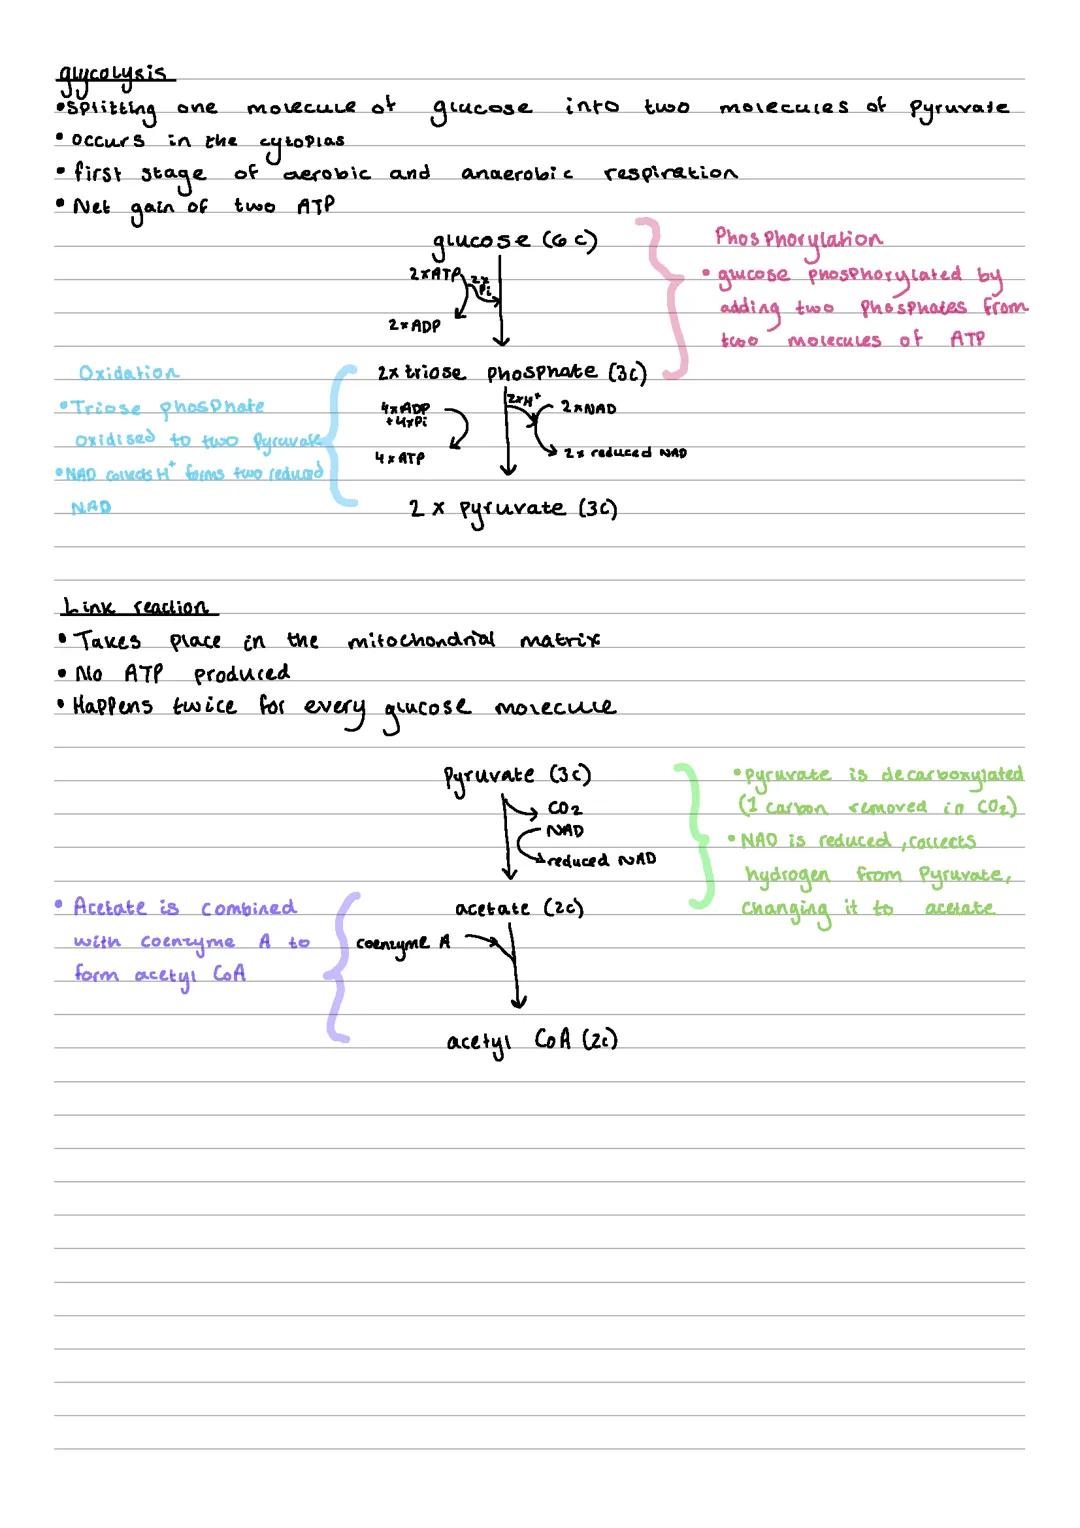 glycolysis
•splitting one molecule of glucose into two molecules of pyruvate
• occurs in the cytoplas
• first stage of aerobic and anaerobic respiration
• Net gain of two ATP
glucose (6c)
2xATP
2x
Pi
2xADP
Phosphorylation
• glucose phosphorylated by
adding two phosphates from
two molecules of ATP
2x triose phosphate (3c)
Oxidation
•Triose phosphate
oxidised to two pyruvate
•NAD collects H⁺ forms two reduced
NAD
4xADP
+4xPi
4xATP
2xH⁺
2xNAD
2x reduced NAD
2 x pyruvate (3c)
Link reaction
• Takes place in the mitochondrial matrix
• No ATP produced
• Happens twice for every glucose molecule
Pyruvate (3c)
CO2
NAD
reduced NAD
•pyruvate is decarboxylated
(1 carbon removed in CO2)
• NAD is reduced, collects
hydrogen from pyruvate,
changing it to acetate
acetate (2c)
• Acetate is combined
with coenzyme A to
form acetyl CoA
coenzyme A
acetyl CoA (2c)